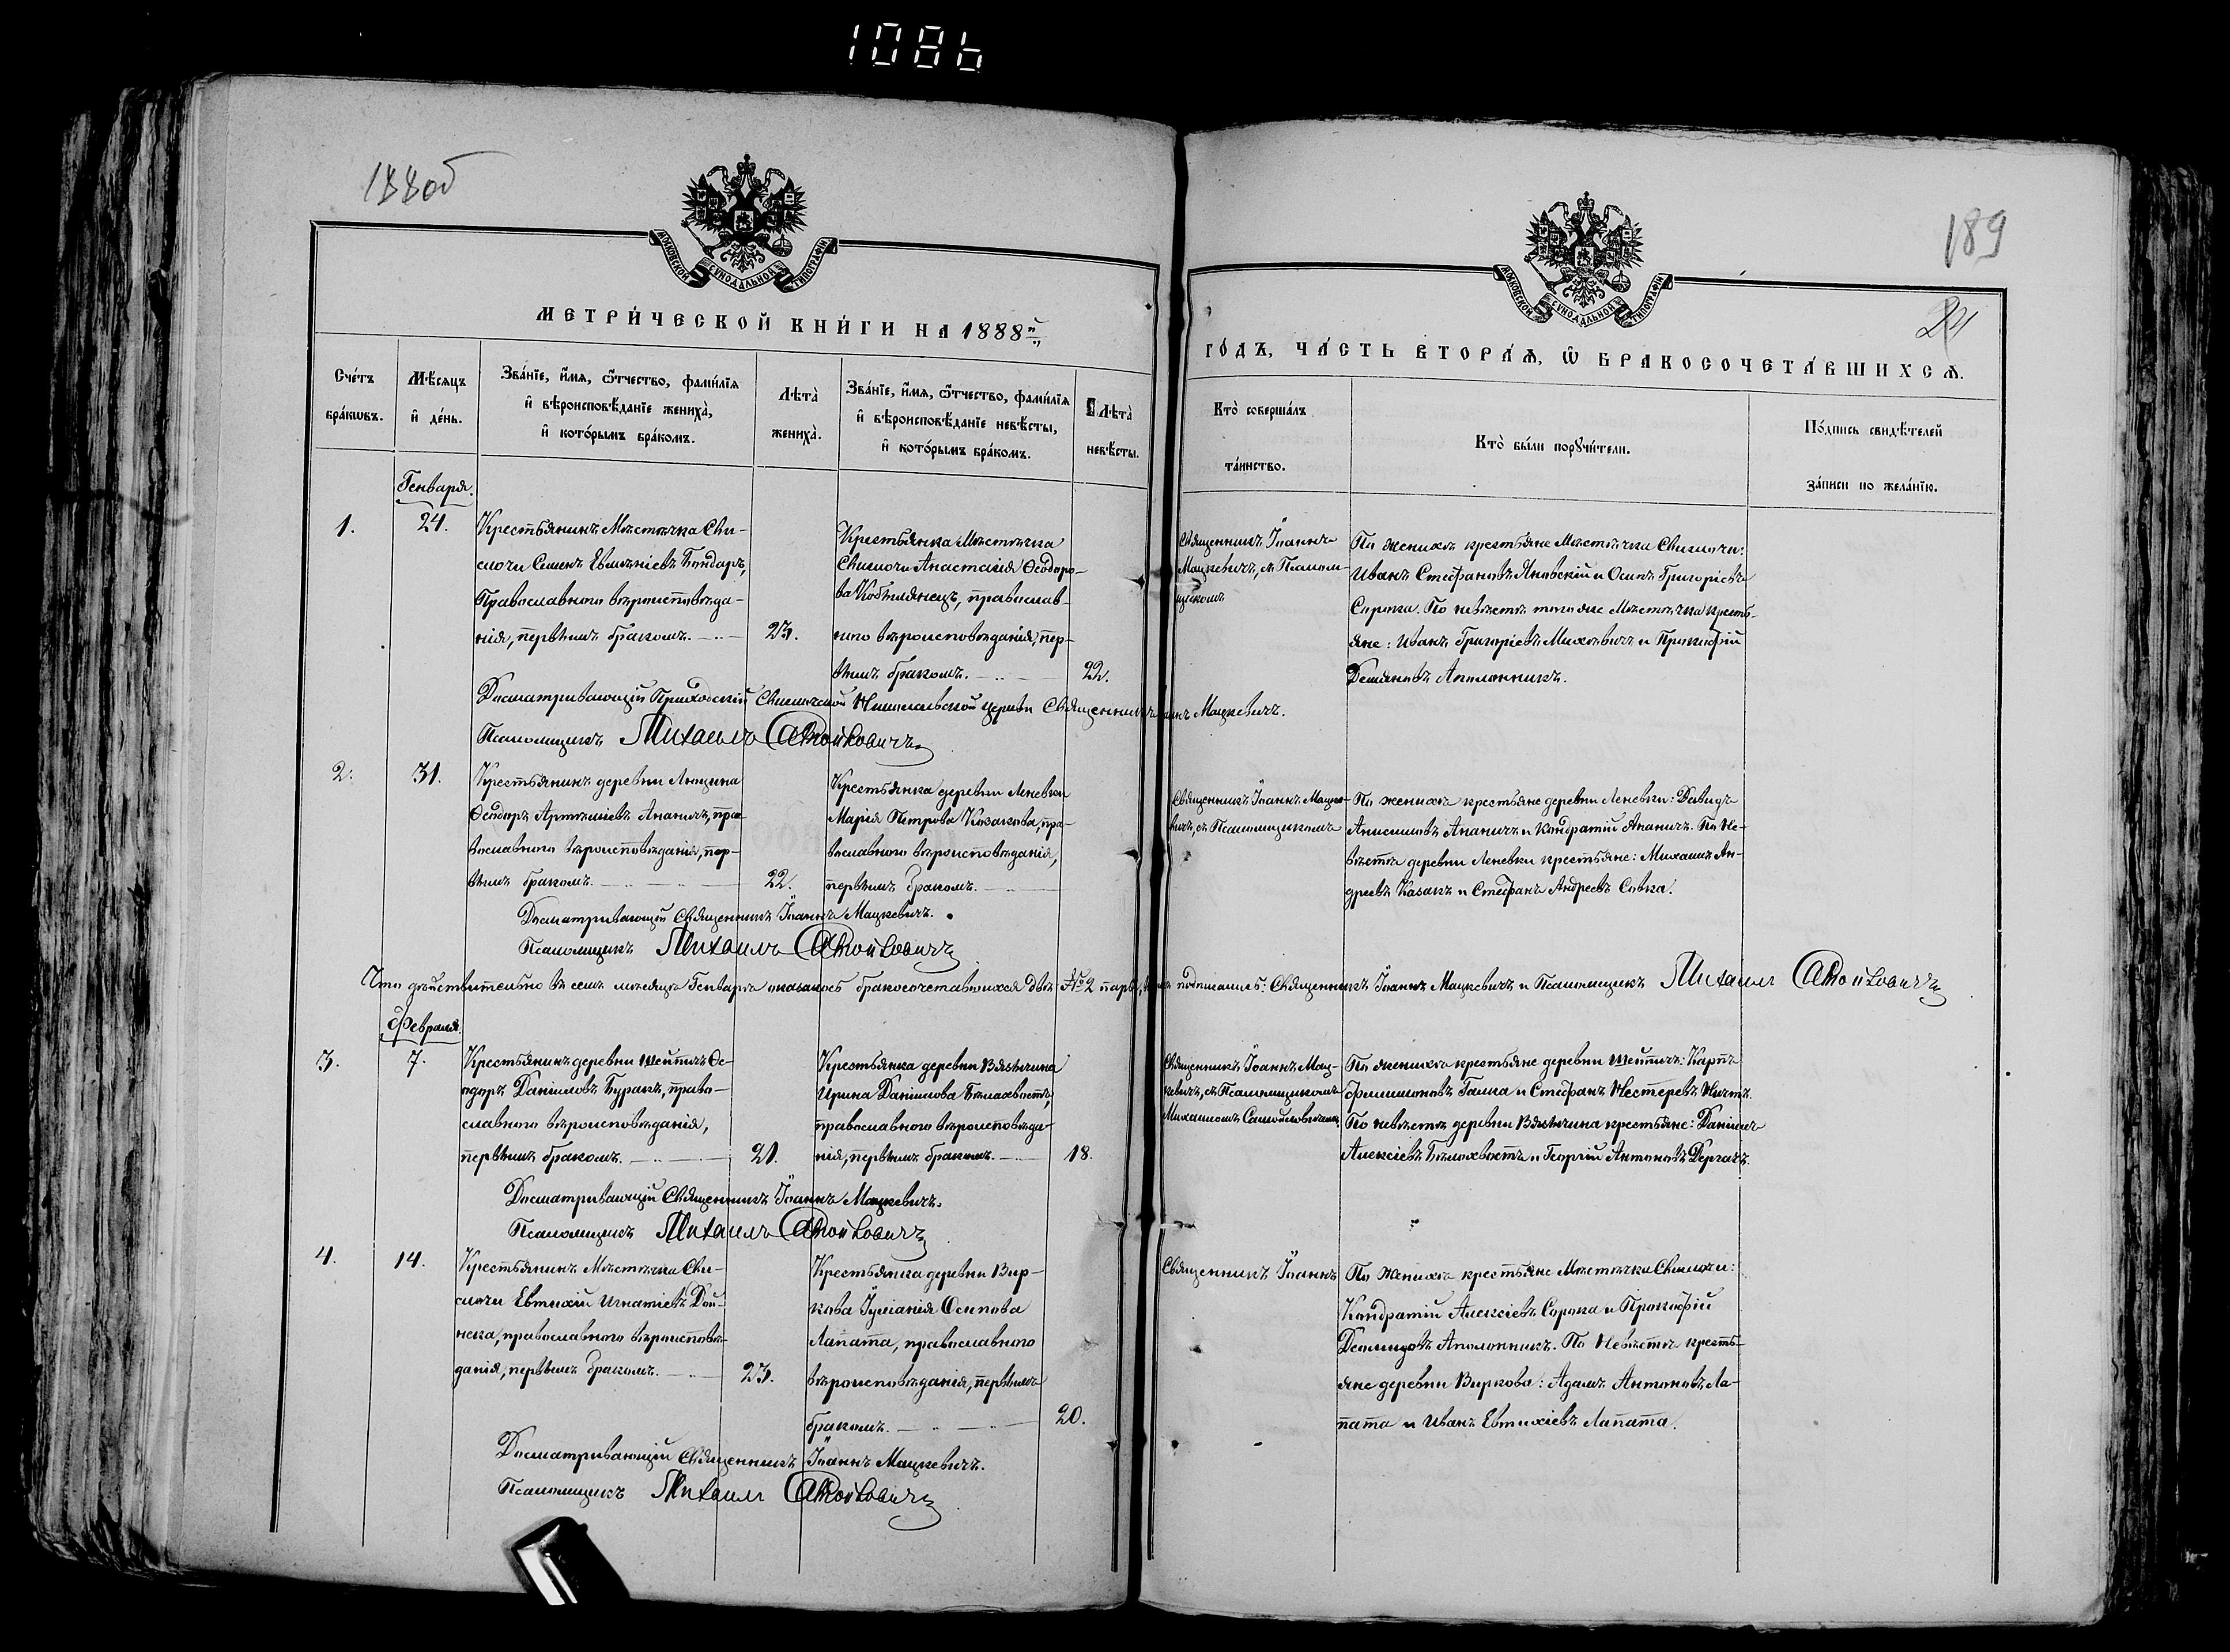 1086
188об
189
24
МОСКОВСКОЙ СУНОДАЛЬНОЙ ТИПОГРАФІИ
МОСКОВСКОЙ СУНОДАЛЬНОЙ ТИПОГРАФІИ
МЕТРИ́ЧЕСКОЙ КНИ́ГИ НА 1888й
ГО́ДЪ, ЧА́СТЬ ВТОРА́Ѧ, Ѿ БРАКОСОЧЕТА́ВШИХСѦ.
Сче́тъ
бра́кѡвъ.
Мѣ́сяцъ
и҆ де́нь.
Зва́нїе, и҆́мя, ѻ҆́тчество, фами́лїя
и҆ вѣроисповѣ́данїе жениха̀,
и҆ кото́рымъ бра́комъ.
Лѣта̀
жениха̀.
Зва́нїе, и҆́мя, ѻ҆́тчество, фами́лїя
и҆ вѣроисповѣ́данїе невѣ́сты,
и҆ кото́рымъ бра́комъ.
Лѣта̀
невѣ́сты.
Кто̀ соверша́лъ
та́инство.
Кто̀ бы́ли порꙋчи́тели.
По́дпись свидѣ́телей
за́писи по жела́нїю.
Генваря.
1.
24.
Крестьянинъ Мѣстечка Сви-
слочи Семенъ Евменіевъ Бондарь,
Православнаго вѣроисповѣда-
нія, первымъ бракомъ.
23.
Крестьянка Мѣстечка
Свислочи Анастасія Ѳеодоро-
ва Кобылянецъ, православ-
наго вѣроисповѣданія, пер-
вымъ бракомъ.
22.
Священникъ Іоаннъ
Мацкевичъ, съ Псалом-
щикомъ
По женихѣ крестьяне Мѣстечка Свислочи:
Иванъ Стефановъ Яновскій и Осипъ Григоріевъ
Сорока. По невѣстѣ того же Мѣстечка кресть-
яне: Иванъ Григоріевъ Михневичъ и Прокофій
Демяновъ Аполонникъ.
Досматривающій Приходскій Свислочской Николаевской церкви Священникъ Іоаннъ Мацкевичъ.
Псаломщикъ Михаилъ Самойловичъ
2.
31.
Крестьянинъ деревни Лющина
Ѳеодоръ Артеміевъ Ананичъ, пра-
вославнаго вѣроисповѣданія, пер-
вымъ бракомъ.
22.
Крестьянка деревни Леневки
Марія Петрова Казакова, пра-
вославнаго вѣроисповѣданія,
первымъ бракомъ.
Священникъ Іоаннъ Мацке-
вичъ, съ Псаломщикомъ
По женихѣ крестьяне деревни Леневки: Давидъ
Анисимовъ Ананичъ и Кондратій Ананичъ. По не-
вѣстѣ деревни Леневки крестьяне: Михаилъ Ан-
дреевъ Казакъ и Стефанъ Андреевъ Совка.
Досматривающій Священникъ Іоаннъ Мацкевичъ.
Псаломщикъ Михаилъ Самойловичъ
Что дѣйствительно въ семъ мѣсяцѣ Генварѣ оказалось бракосочетавшихся двѣ № 2 пары, подписались: Священникъ Іоаннъ Мацкевичъ и Псаломщикъ Михаилъ Самойловичъ
Февраля.
3.
7.
Крестьянинъ деревни Шейпичъ Ѳе-
одоръ Даніиловъ Буракъ, право-
славнаго вѣроисповѣданія,
первымъ бракомъ.
21.
Крестьянка деревни Вязычина
Ирина Даніилова Бѣлахвостъ,
православнаго вѣроисповѣда-
нія, первымъ бракомъ.
18.
Священникъ Іоаннъ Мац-
кевичъ, съ Псаломщикомъ
Михаиломъ Самойловичемъ
По женихѣ крестьяне деревни Шейпичъ: Карпъ
Филимоновъ Гамза и Стефанъ Нестеревъ
По невѣстѣ деревни Вязычина крестьяне: Даніилъ
Алексіевъ Бѣлохвостъ и Георгій Антоновъ Дергачъ.
Досматривающій Священникъ Іоаннъ Мацкевичъ.
Псаломщикъ Михаилъ Самойловичъ
4.
14.
Крестьянинъ Мѣстечка Сви-
слочи Евтихій Игнатіевъ Дой-
нека, православнаго вѣроисповѣ-
данія, первымъ бракомъ.
23.
Крестьянка деревни Вир-
кова Іуліанія Осипова
Лапата, православнаго
вѣроисповѣданія, первымъ
бракомъ.
20.
Священникъ Іоаннъ
По женихѣ крестьяне Мѣстечка Свислочи:
Кондратій Алексіевъ Сорока и Прокофій
Демидовъ Аполонникъ. По невѣстѣ кресть-
яне деревни Виркова: Адамъ Антоновъ Ла-
пата и Иванъ Евтихіевъ Лапата.
Досматривающій Священникъ Іоаннъ Мацкевичъ.
Псаломщикъ Михаилъ Самойловичъ